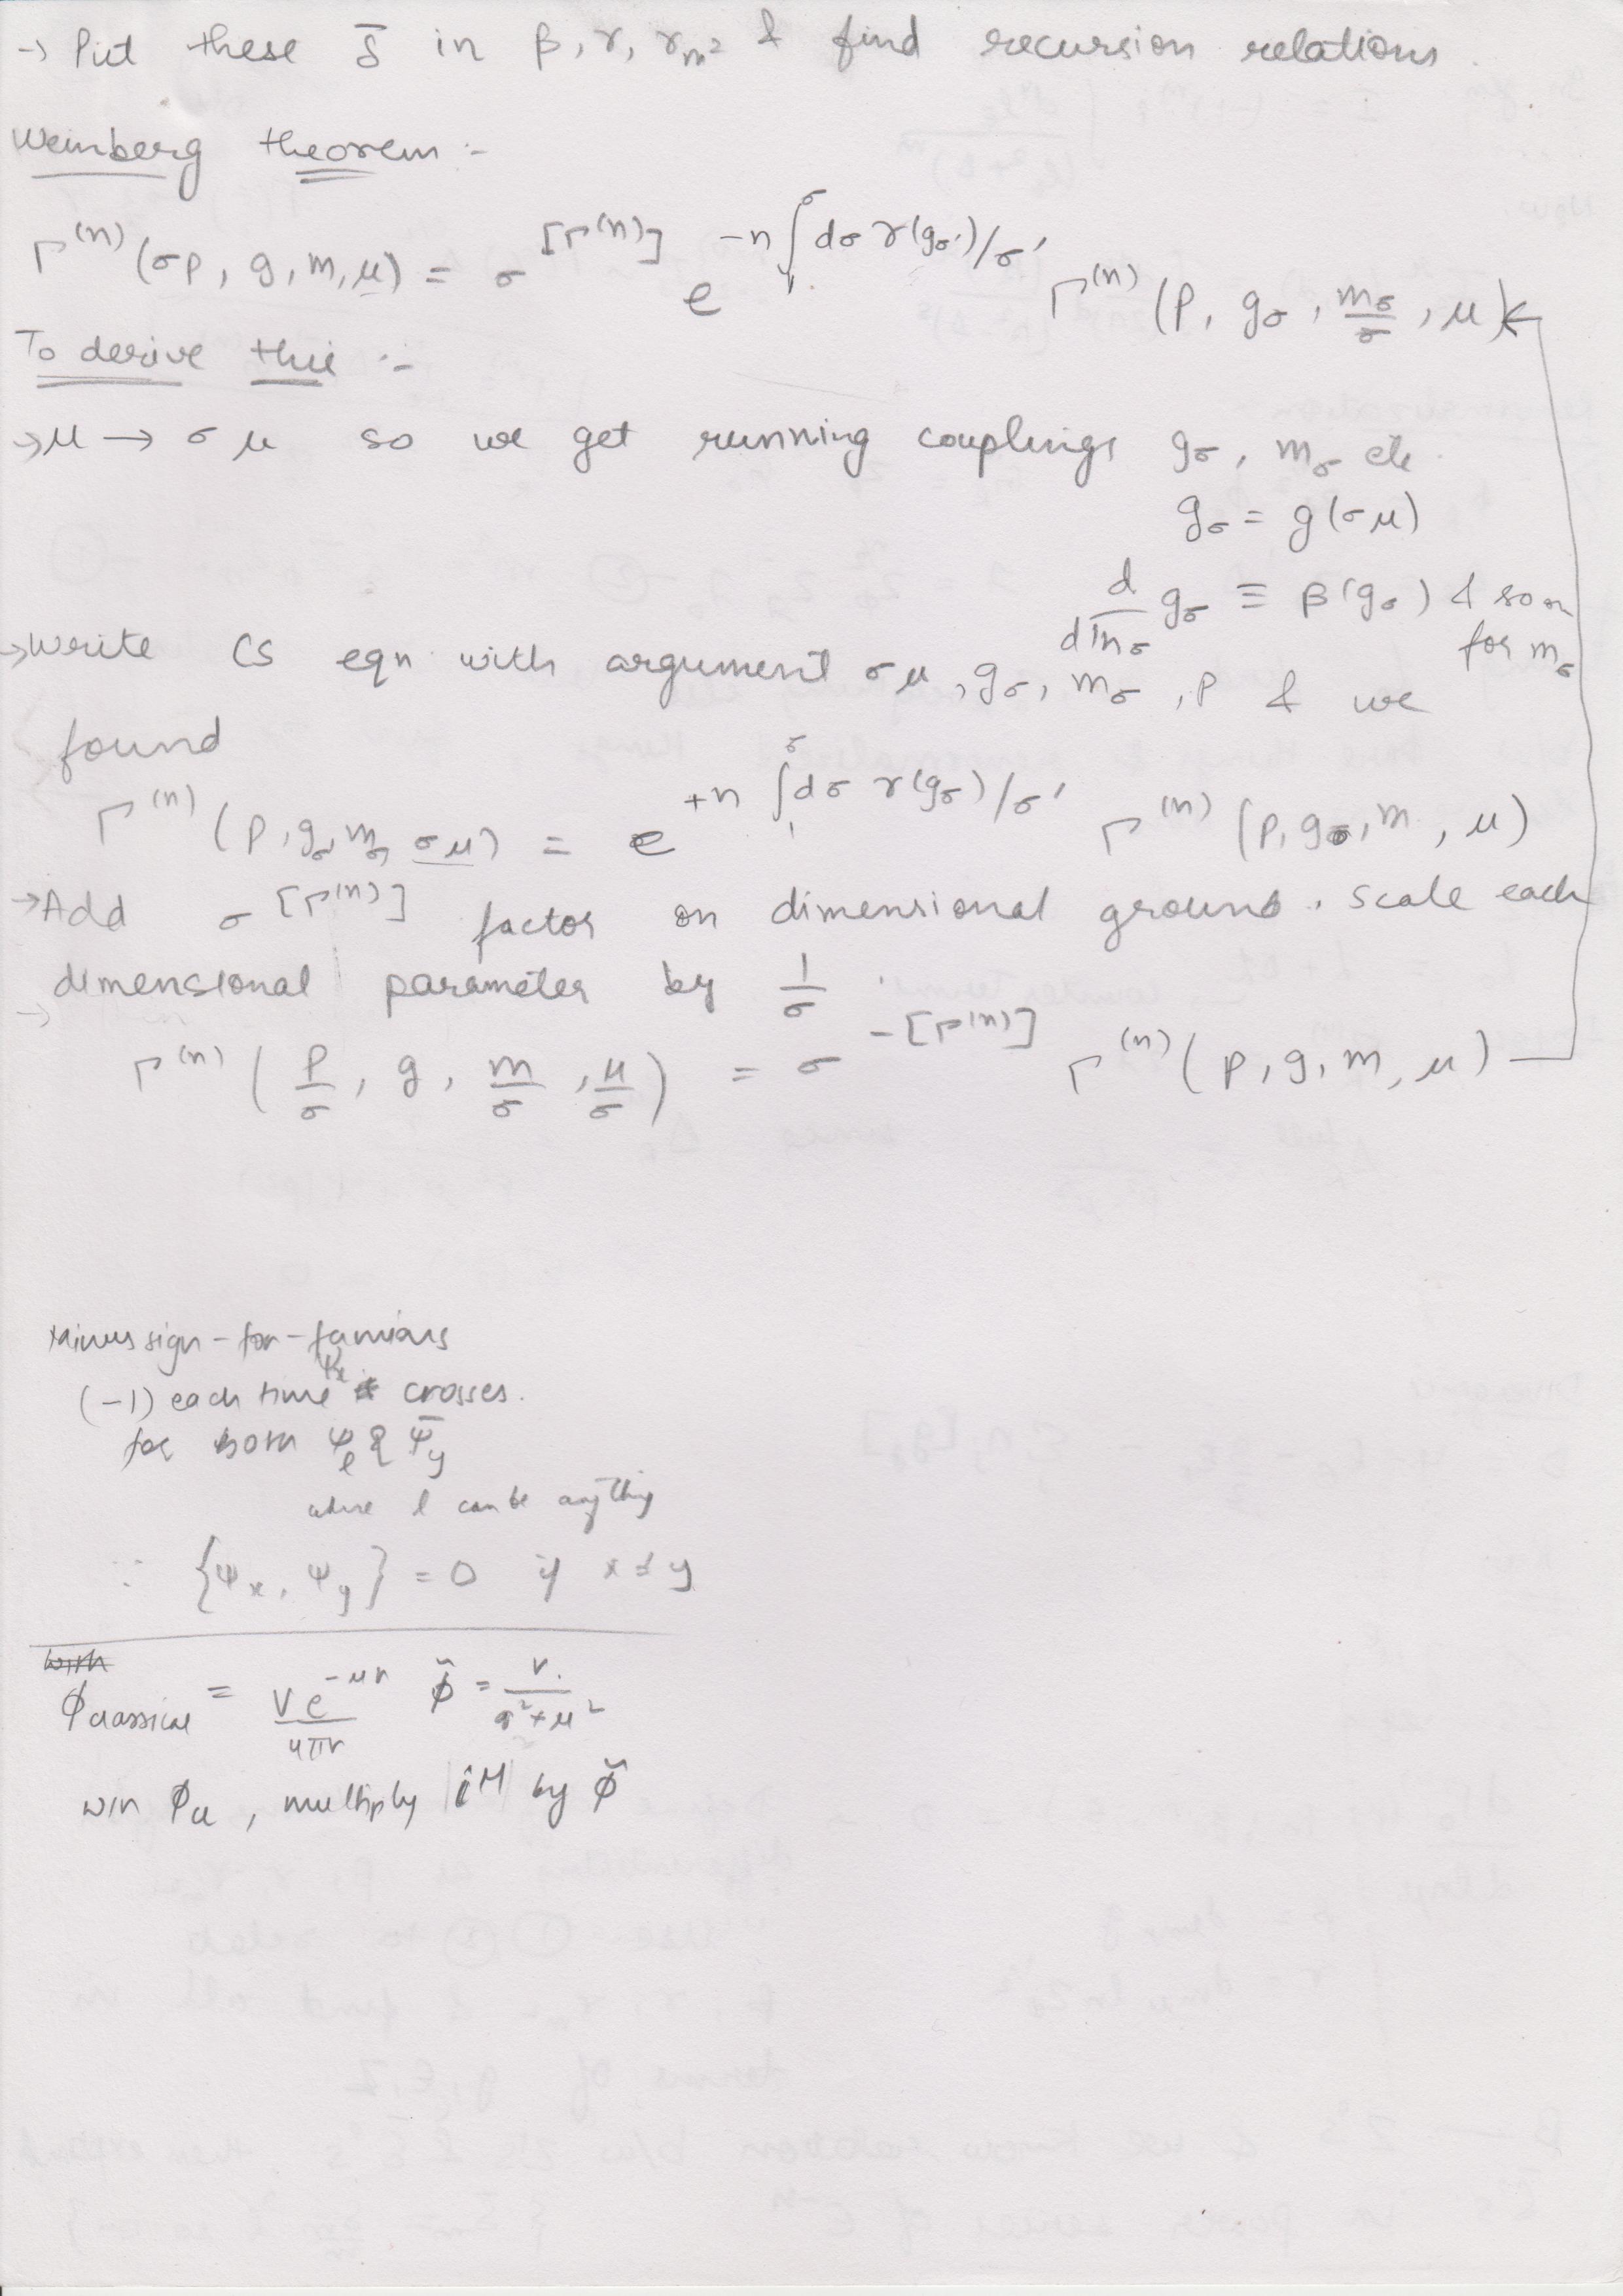 → Put these δ̄ in β, γ, γ_m² & find recursion relations.
Weinberg theorem :-
Γ^(n) (σp, g, m, μ) = σ^[Γ^(n)] e^(-n ∫_1^σ dσ γ(g_σ')/σ') Γ^(n) (p, g_σ, m_σ/σ, μ)
To derive this :-
→ μ → σμ so we get running couplings g_σ, m_σ etc.
g_σ = g(σμ)
d/d ln σ g_σ ≡ β(g_σ) & so on
for m_σ
→ Write CS eqn with argument σμ, g_σ, m_σ, p & we
found
Γ^(n) (p, g_σ, m_σ, σμ) = e^(+n ∫_1^σ dσ γ(g_σ)/σ') Γ^(n) (p, g_σ, m, μ)
→ Add σ^[Γ^(n)] factor on dimensional ground. Scale each
dimensional parameter by 1/σ
→
Γ^(n) (p/σ, g, m/σ, μ/σ) = σ^-[Γ^(n)] Γ^(n) (p, g, m, μ)
Minus sign-for-fermions
(-1) each time ψ_x crosses.
for both ψ_l & ψ̄_y
where l can be anything
∵ {ψ_x, ψ_y} = 0 if x ≠ y
with
φ_classical = V e^(-μr) / 4πr φ̃ = V. / q² + μ²
win φ_cl, multiply |iM| by φ̃